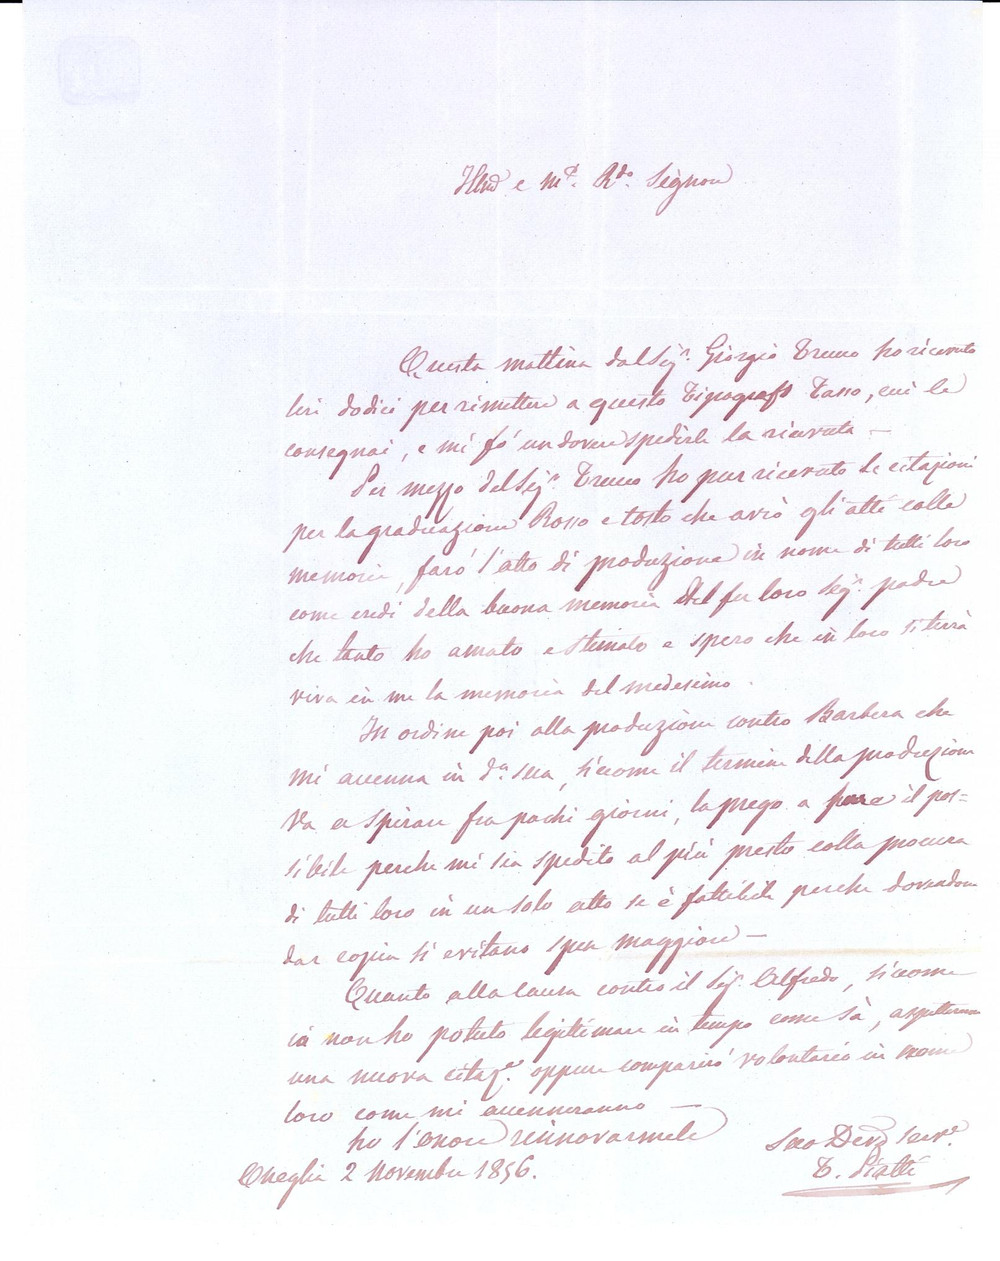 Illmo e M.to R.do Signore
Questa mattina dal Sig.r Giorgio Treuco ho ricevuto
lire dodici per rimettere a questo Tipografo Tasso, cui le
consegnai, e mi fo' un dovere spedirle la ricevuta —
Per mezzo del Sig.r Treuco ho pur ricevuto le citazioni
per la graduazione Rosso e tosto che avrò gli atti colle
memorie, farò l'atto di produzione in nome di tutti loro
come eredi della buona memoria del fu loro Sig.r padre
che tanto ho amato e stimato e spero che in loro si terrà
viva in me la memoria del medesimo.
In ordine poi alla produzione contro Barbera che
mi accenna in d.ta sua, siccome il termine della produzione
va a spirare fra pochi giorni, la prego a fare il pos=
sibile perche mi sia spedito al più presto colla procura
di tutti loro in un solo atto se è fattibile perche dovendone
dar copia si evitano spese maggiori —
Quanto alla causa contro il Sig.r Alfredo, siccome
io non ho potuto legitimare in tempo come sà, aspetteremo
una nuova citaz.e oppure comparirò volontario in nome
loro come mi accenneranno —
ho l'onore rinnovarmele
Suo Dev.o Serv.e
Oneglia 2 Novembre 1856.
T. Piatti